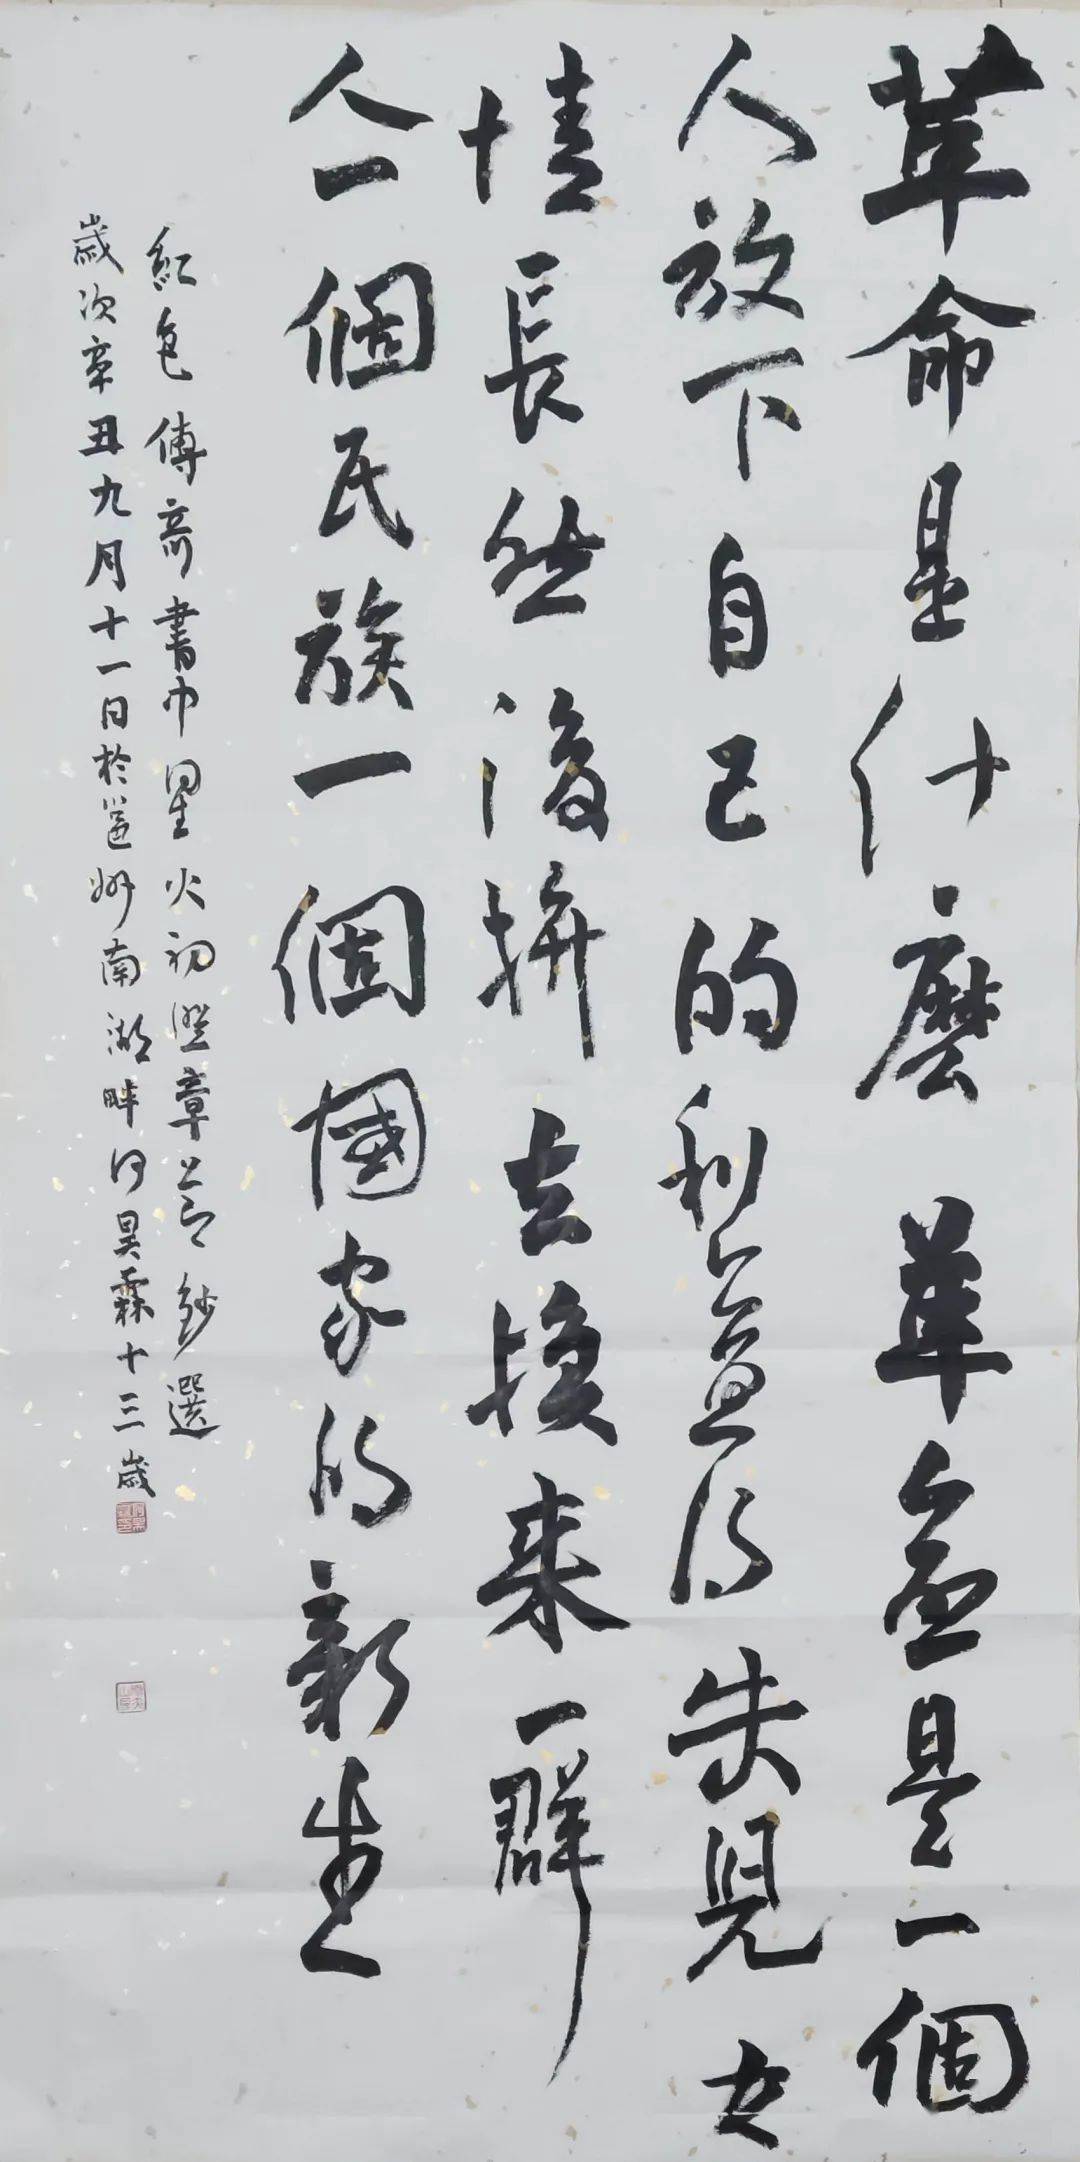 革命是什麼革命是一個
人放下自己的利益得失兒女
情長然後拚去換來一群
人一個民族一個國家的新生
紅色傳奇書中星火初燃章節鈔選
歲次辛丑九月十一日於邕州南湖畔何昊霖十三歲